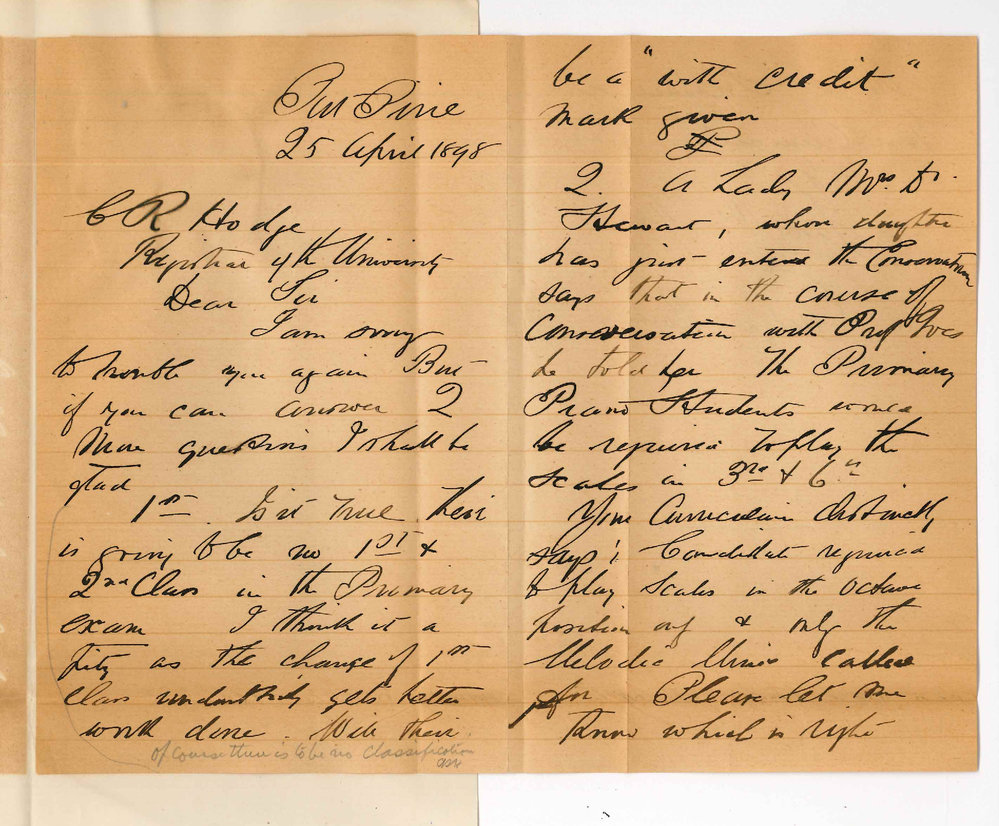 Port Pirie
25 April 1898
C R Hodge
Registrar of the University
Dear Sir
I am sorry
to trouble you again But
if you can answer 2
More questions I shall be
glad
1st. Is it true their
is going to be no 1st &
2nd Class in the Primary
exam I think it a
pity as the change of 1st
class undoubtedly gets better
work done. Will their
of course there is to be no classification
be a "with credit"
mark given
2. A Lady Mrs Dr.
Stewart, whose daughter
has just entered the Conservatorium
says that in the course of
Conversation with Prof Ives
he told her the Primary
Piano Students would
be required to play the
scales in 3rds & 6ths
Your Curriculum distinctly
says, Candidate required
to play scales in the octave
position only & only the
Melodic Minor called
for Please let me
know which is right